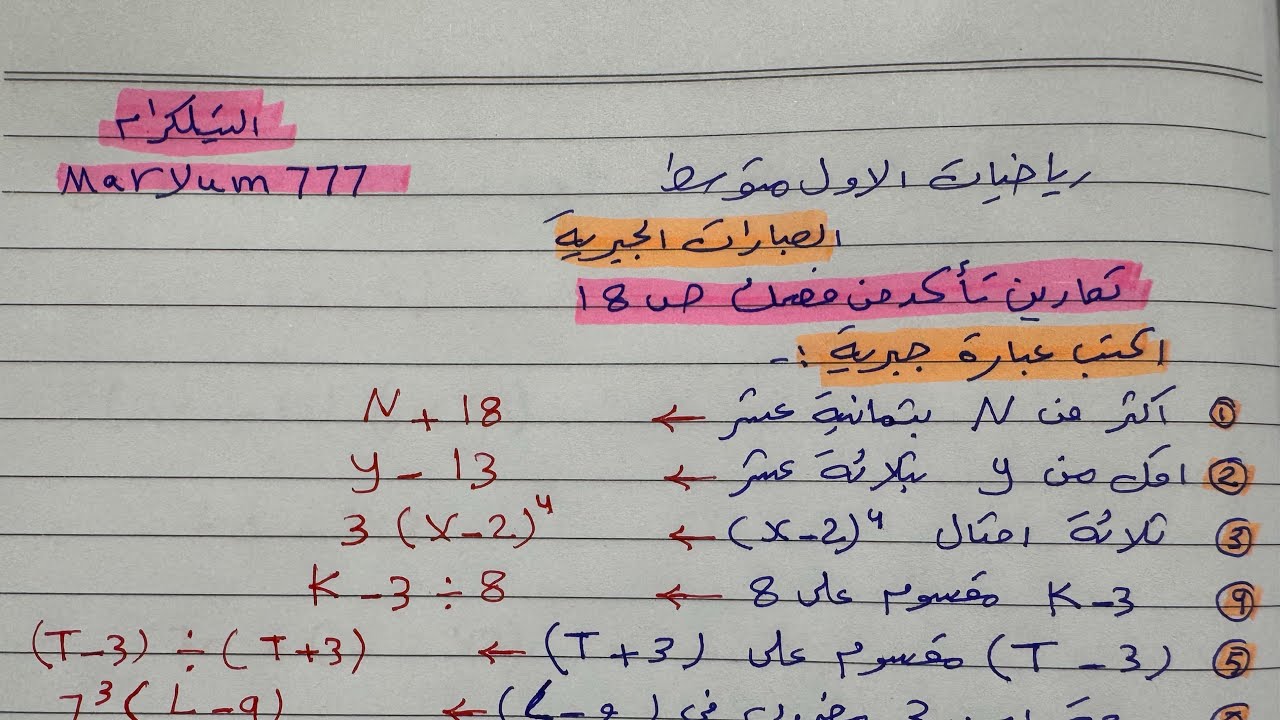 التيلكرام
Maryum 777
رياضيات الاول متوسط
العبارات الجبرية
تمارين تأكد من فهمك ص 18
اكتب عبارة جبرية :-
① اكثر من N بثمانية عشر ← N + 18
② اقل من y بثلاثة عشر ← y - 13
③ ثلاثة امثال (X-2)⁴ ← 3 (X-2)⁴
④ K-3 مقسوم على 8 ← K-3 ÷ 8
⑤ (T-3) مقسوم على (T+3) ← (T-3) ÷ (T+3)
3 مضروب في (L-9) ← 7³(L-9)